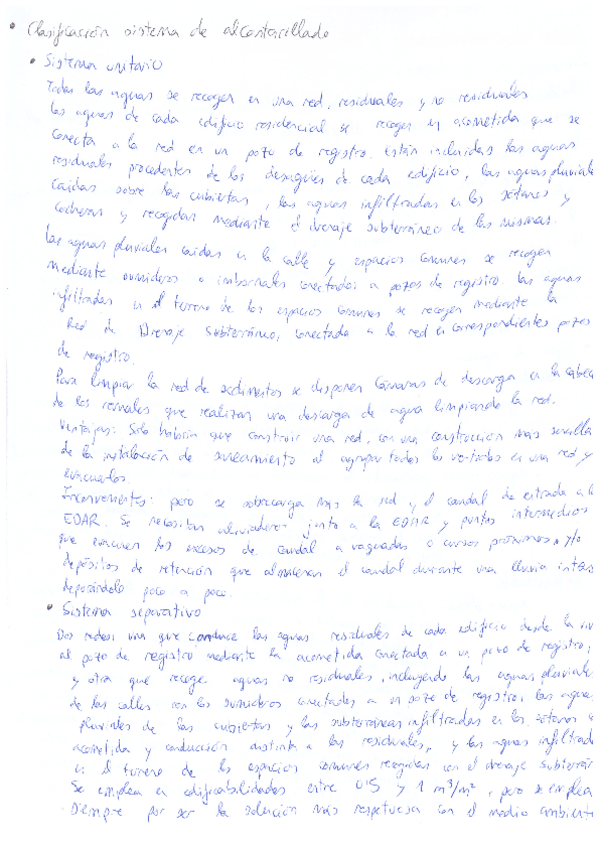 • Clasificación sistema de alcantarillado
• Sistema unitario
Todas las aguas se recogen en una red, residuales y no residuales
las aguas de cada edificio residencial se recogen en acometida que se
conecta a la red en un pozo de registro. Están incluidas las aguas
residuales procedentes de los desagües de cada edificio, las aguas pluviales
caídas sobre las cubiertas, las aguas infiltradas en los sótanos y
cocheras y recogidas mediante el drenaje subterráneo de las mismas.
Las aguas pluviales caídas en la calle y espacios comunes se recogen
mediante sumideros o imbornales conectados a pozos de registro las aguas
infiltradas en el terreno de los espacios comunes se recogen mediante la
Red de Drenaje Subterráneo, conectada a la red en correspondientes pozos
de registro.
Para limpiar la red de sedimentos se disponen Cámaras de descarga en la cabec
de los ramales que realizan una descarga de agua limpiando la red.
Ventajas: Solo habría que construir una red, con una construcción más sencilla
de la instalación de saneamiento al agrupar todos los vertidos en una red y
evacuarlos.
Inconvenientes: pero se sobrecarga más la red y el caudal de entrada a la
EDAR. Se necesitan aliviaderos junto a la EDAR y puntos intermedios
que evacuen los excesos de caudal a vaguadas o cursos próximos, y/o
depósitos de retención que almacenan el caudal durante una lluvia intens
depositándolo poco a poco.
• Sistema separativo
Dos redes: una que conduce las aguas residuales de cada edificio desde la
al pozo de registro mediante la acometida conectada a un pozo de registro;
y otra que recoge aguas no residuales, incluyendo las aguas pluviale
de las calles con los sumideros conectados a un pozo de registro, las agua
pluviales de las cubiertas y las subterráneas infiltradas en los sótanos
acometida y conducción distinta a las residuales, y las aguas infiltrada
en el terreno de los espacios comunes recogidas con el drenaje subterrán
Se emplea en edificabilidades entre 0,5 y 1 m³/m², pero se emplea
siempre por ser la solución más respetuosa con el medio ambiente